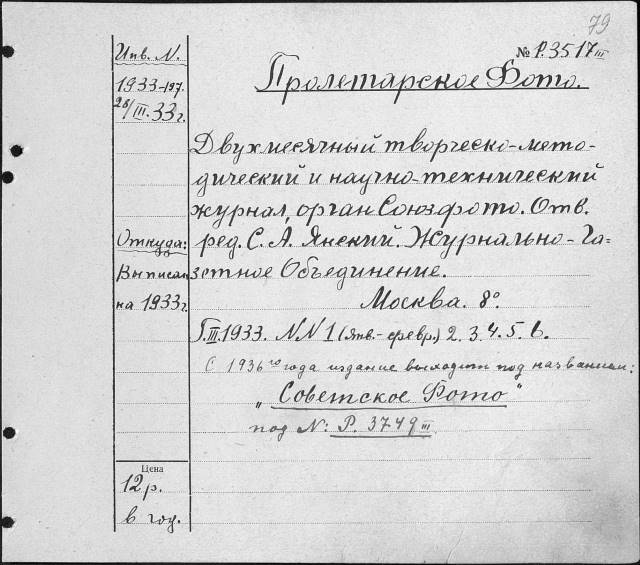 79
Инв. N.
№ Р.3517 III
1933-197.
28/III.33г.
Пролетарское Фото.
Двухмесячный творческо-мето-
дический и научно-технический
журнал, орган Союзфото. Отв.
Откуда:
ред. С. А. Янский. Журнально-Га-
Выписан
зетное Объединение.
на 1933г.
Москва. 8°.
Г.III.1933. NN 1 (янв.-февр.) 2. 3. 4. 5. 6.
С 1936го года издание выходит под названием:
„Советское Фото"
под N: Р. 3749 III
Цена
12р.
в год.